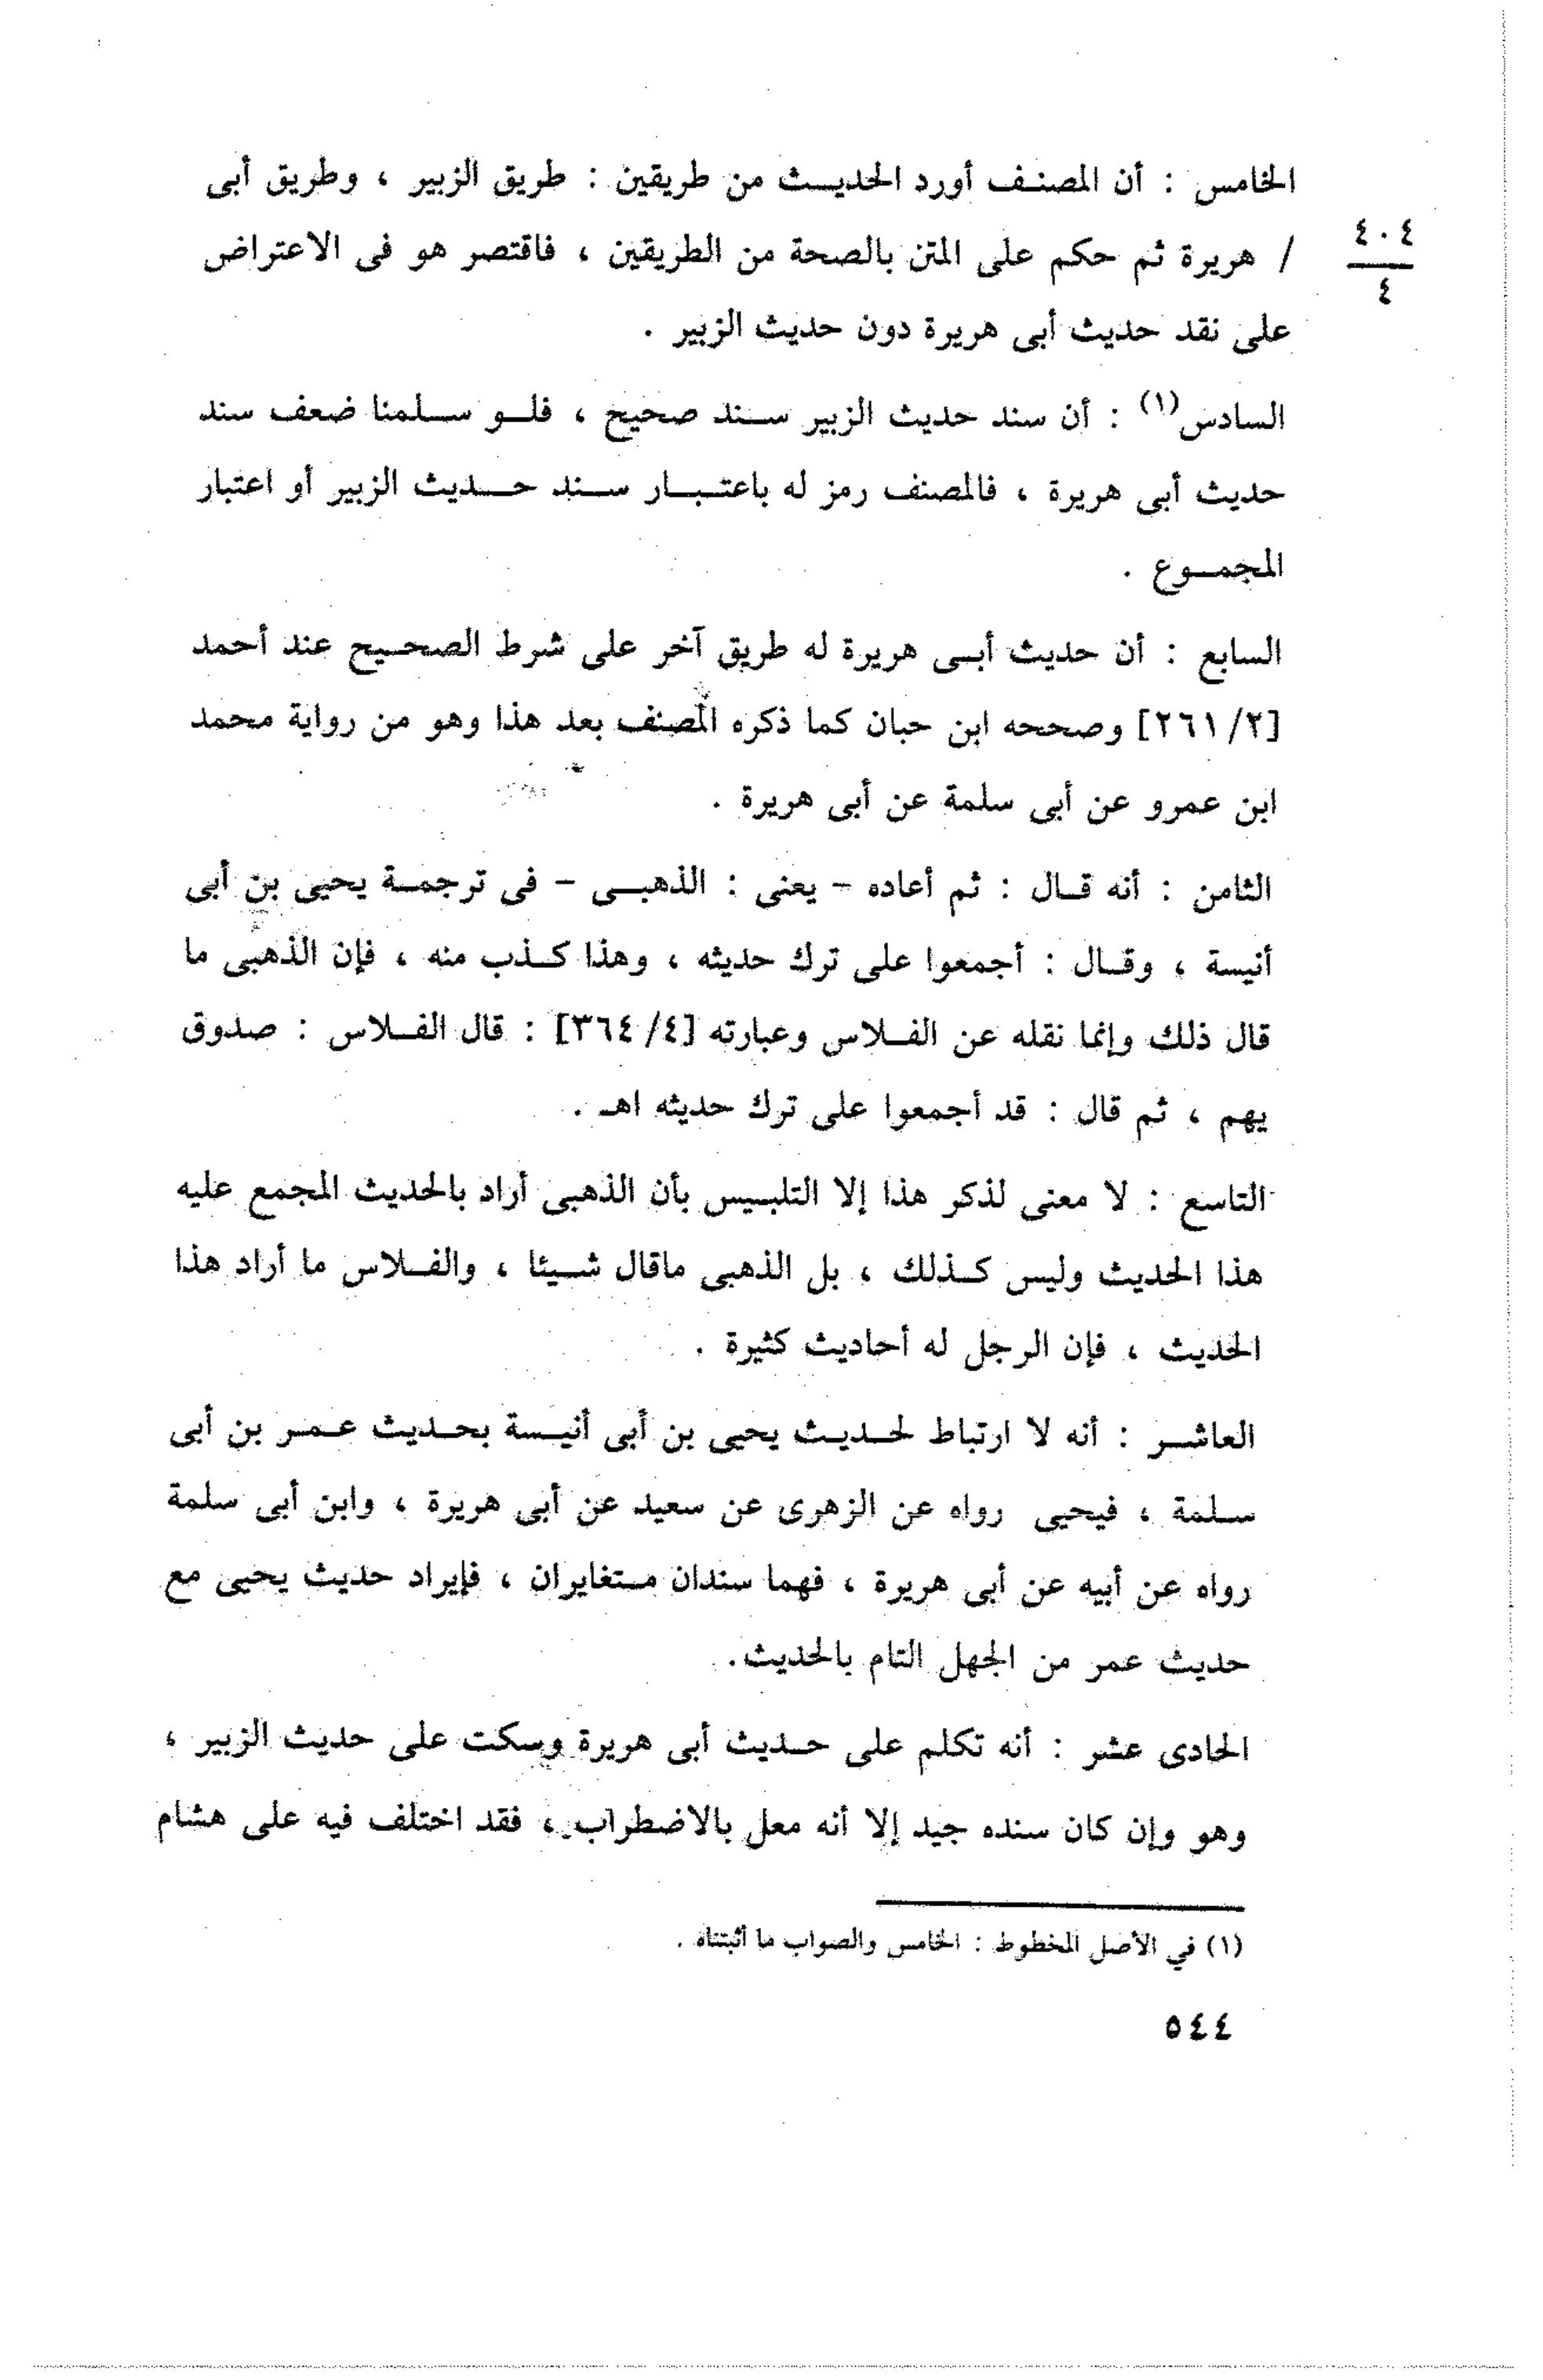 الخامس : أن المصنف أورد الحديث من طريقين : طريق الزبير ، وطريق أبى
٤٠٤
٤
/ هريرة ثم حكم على المتن بالصحة من الطريقين ، فاقتصر هو فى الاعتراض
على نقد حديث أبى هريرة دون حديث الزبير .
السادس(١) : أن سند حديث الزبير سند صحيح ، فلو سلمنا ضعف سند
حديث أبى هريرة ، فالمصنف رمز له باعتبار سند حديث الزبير أو اعتبار
المجموع .
السابع : أن حديث أبى هريرة له طريق آخر على شرط الصحيح عند أحمد
[٢/ ٢٦١] وصححه ابن حبان كما ذكره المصنف بعد هذا وهو من رواية محمد
ابن عمرو عن أبى سلمة عن أبى هريرة .
الثامن : أنه قال : ثم أعاده - يعنى : الذهبى - فى ترجمة يحيى بن أبى
أنيسة ، وقال : أجمعوا على ترك حديثه ، وهذا كذب منه ، فإن الذهبى ما
قال ذلك وإنما نقله عن الفلاس وعبارته [٤/ ٣٦٤] : قال الفلاس : صدوق
يهم ، ثم قال : قد أجمعوا على ترك حديثه اهـ .
التاسع : لا معنى لذكر هذا إلا التلبيس بأن الذهبى أراد بالحديث المجمع عليه
هذا الحديث وليس كذلك ، بل الذهبى ماقال شيئا ، والفلاس ما أراد هذا
الحديث ، فإن الرجل له أحاديث كثيرة .
العاشر : أنه لا ارتباط لحديث يحيى بن أبى أنيسة بحديث عمر بن أبى
سلمة ، فيحيى رواه عن الزهرى عن سعيد عن أبى هريرة ، وابن أبى سلمة
رواه عن أبيه عن أبى هريرة ، فهما سندان متغايران ، فإيراد حديث يحيى مع
حديث عمر من الجهل التام بالحديث.
الحادى عشر : أنه تكلم على حديث أبى هريرة وسكت على حديث الزبير ،
وهو وإن كان سنده جيد إلا أنه معل بالاضطراب ، فقد اختلف فيه على هشام
(١) في الأصل المخطوط : الخامس والصواب ما أثبتناه .
٥٤٤